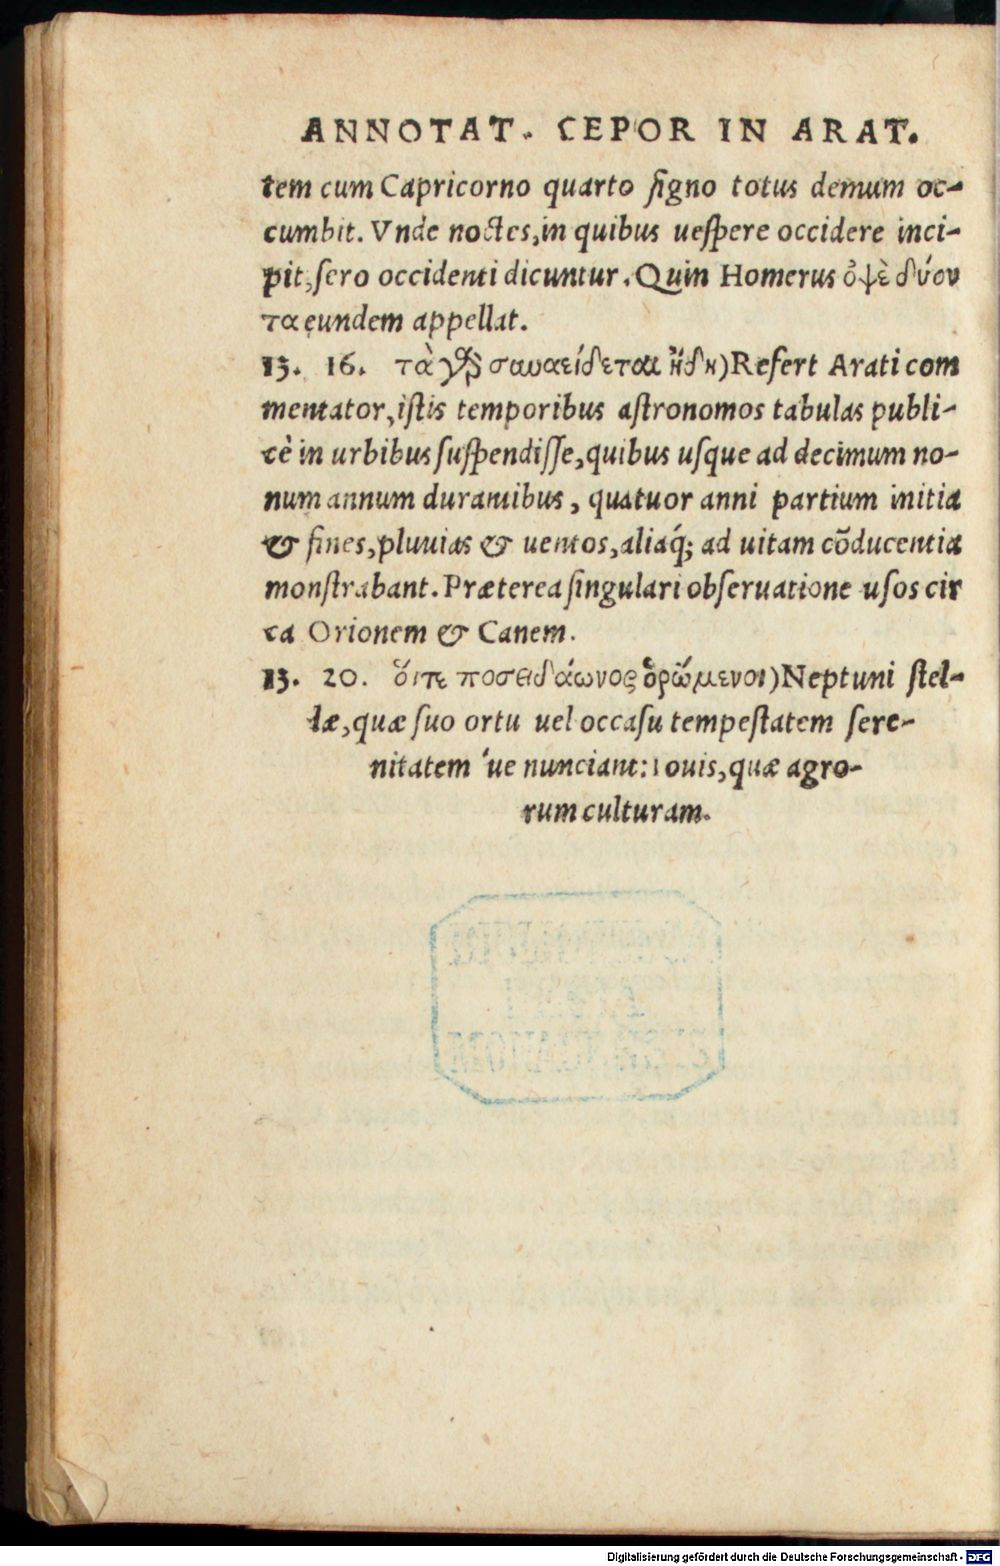 ANNOTAT. CEPOR IN ARAT.
tem cum Capricorno quarto ſigno totus demum oc-
cumbit. Vnde noctes, in quibus ueſpere occidere inci-
pit, ſero occidenti dicuntur. Quin Homerus ὀψὲ δύον
τα eundem appellat.
13. 16. τὰ γὰρ συναείδεται ἤδη) Refert Arati com
mentator, iſtis temporibus aſtronomos tabulas publi-
cè in urbibus ſuſpendiſſe, quibus uſque ad decimum no-
num annum durantibus, quatuor anni partium initia
& fines, pluuias & uentos, aliaq́; ad uitam cōducentia
monſtrabant. Præterea ſingulari obſeruatione uſos cir
ca Orionem & Canem.
13. 20. ὅιτε ποσειδάωνος ὁρώμενοι) Neptuni ſtel-
læ, quæ ſuo ortu uel occaſu tempeſtatem ſere-
nitatem ue nunciant: Iouis, quæ agro-
rum culturam.
Digitalisierung gefördert durch die Deutsche Forschungsgemeinschaft - DFG